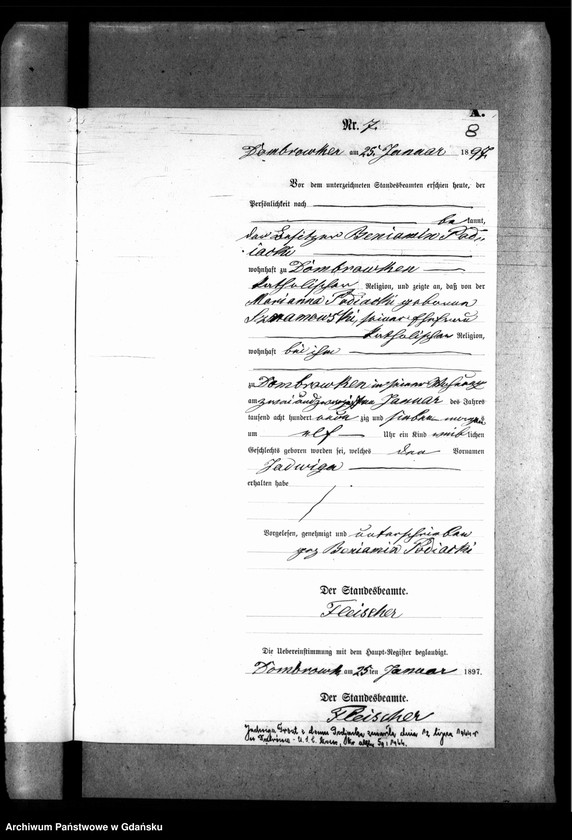 A.
8
Nr. 7.
Dombrowken am 25. Januar 1897.
Vor dem unterzeichneten Standesbeamten erschien heute, der
Persönlichkeit nach
bekannt,
der Besitzer Beniamin Pod-
iacki
wohnhaft zu Dombrowken
katholischer Religion, und zeigte an, daß von der
Marianna Podiacki geborenen
seiner Ehefrau
katholischer Religion,
wohnhaft bei ihm
zu Dombrowken in seiner Wohnung
am zwei und zwanzigsten Januar des Jahres
tausend acht hundert neun zig und sieben morgens
um elf Uhr ein Kind weiblichen
Geschlechts geboren worden sei, welches den Vornamen
Jadwiga
erhalten habe
Vorgelesen, genehmigt und unterschrieben
gez Beniamin Podiacki
Der Standesbeamte.
Fleischer
Die Uebereinstimmung mit dem Haupt-Register beglaubigt.
Dombrowk am 25ten Januar 1897.
Der Standesbeamte.
Fleischer
Jadwiga z domu zmarła dnia 12 lipca
Archiwum Państwowe w Gdańsku